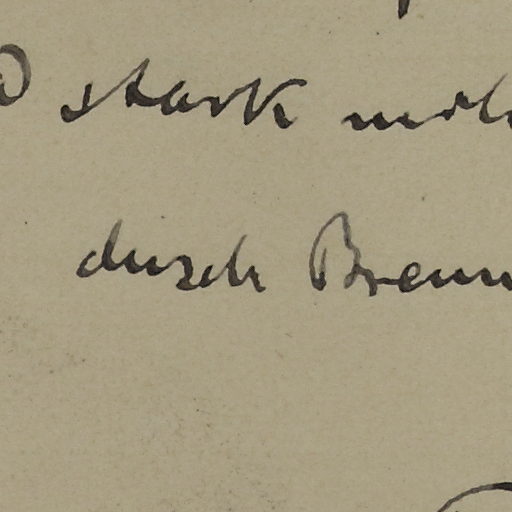 stark
durch Brenn